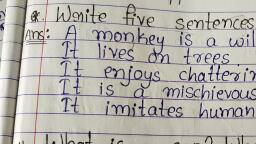 Q. Write five sentences
Ans: A monkey is a wil
It lives on trees
It enjoys chatterin
It is a mischievous
It imitates human
What is